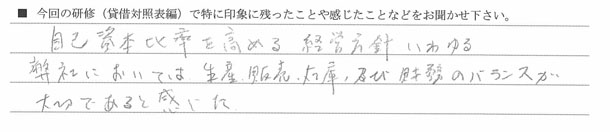 ■ 今回の研修（貸借対照表編）で特に印象に残ったことや感じたことなどをお聞かせ下さい。
自己資本比率を高める経営方針いわゆる
弊社においては、生産、販売、在庫、及び財務のバランスが
大切であると感じた